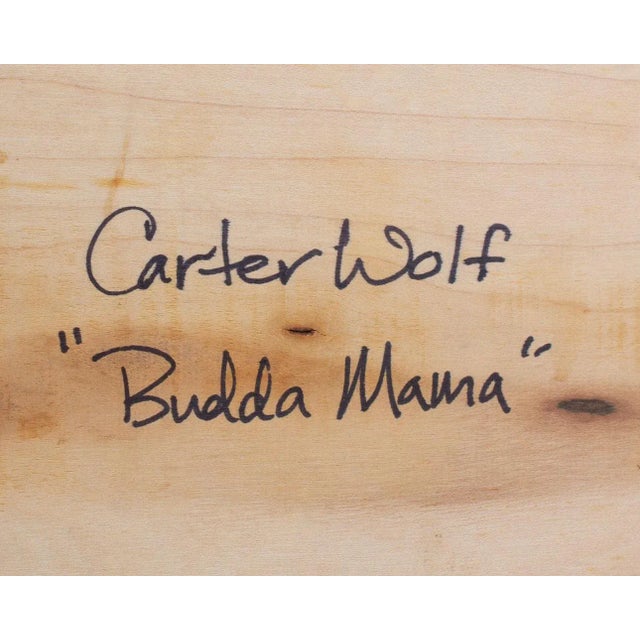 Carter Wolf
"Budda Mama"